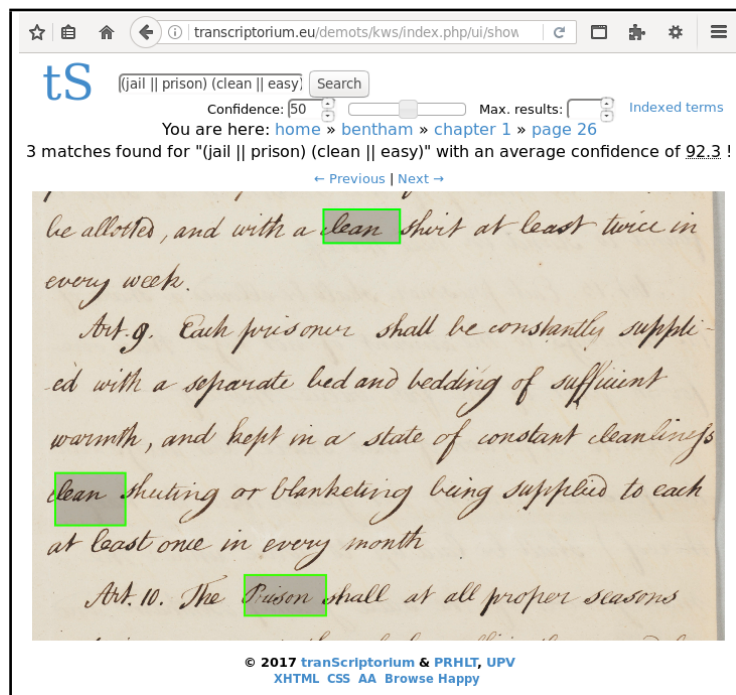 transcriptorium.eu/demots/kws/index.php/ui/show
tS (jail || prison) (clean || easy) Search
Confidence: 50 Max. results: Indexed terms
You are here: home » bentham » chapter 1 » page 26
3 matches found for "(jail || prison) (clean || easy)" with an average confidence of 92.3 !
← Previous | Next →
be allotted, and with a clean shirt at least twice in
every week.
Art. 9. Each prisoner shall be constantly suppli-
-ed with a separate bed and bedding of sufficient
warmth, and kept in a state of constant cleanliness
clean sheeting or blanketing being supplied to each
at least once in every month
Art. 10. The Prison shall at all proper seasons
© 2017 tranScriptorium & PRHLT, UPV
XHTML CSS AA Browse Happy